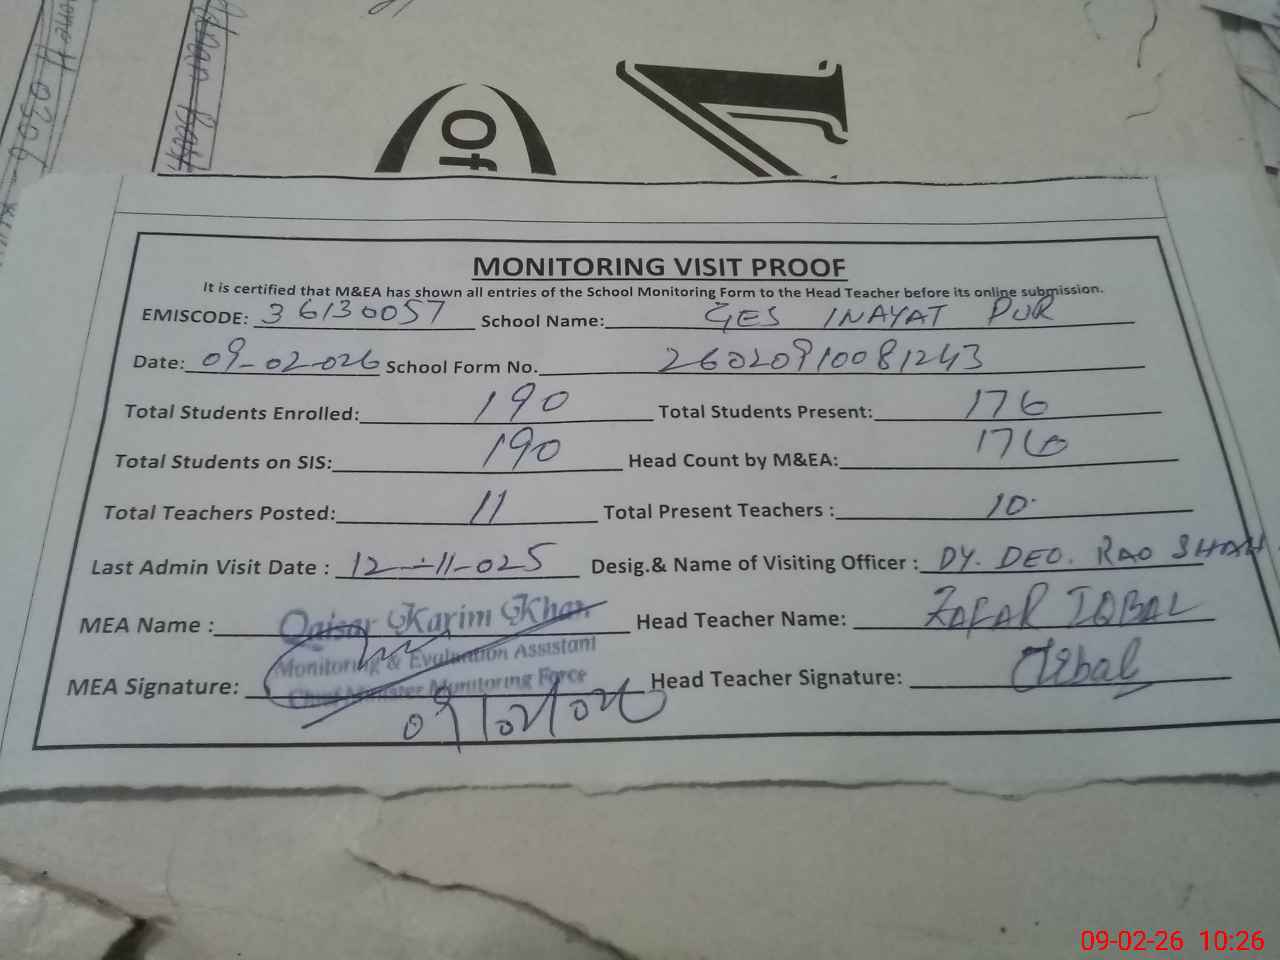 Of
MONITORING VISIT PROOF
It is certified that M&EA has shown all entries of the School Monitoring Form to the Head Teacher before its online submission.
EMISCODE: 36130057 School Name: GES INAYAT PUR
Date: 09-02-026 School Form No. 26020910081243
Total Students Enrolled: 190 Total Students Present: 176
Total Students on SIS: 190 Head Count by M&EA: 176
Total Teachers Posted: 11 Total Present Teachers : 10
Last Admin Visit Date : 12-11-025 Desig.& Name of Visiting Officer : DY. DEO. RAO SHAH
MEA Name : Qaisar Karim Khan Head Teacher Name: ZAFAR IQBAL
Monitoring & Evaluation Assistant
MEA Signature: Chief Minister Monitoring Force Head Teacher Signature: Iqbal
09/02/026
09-02-26 10:26